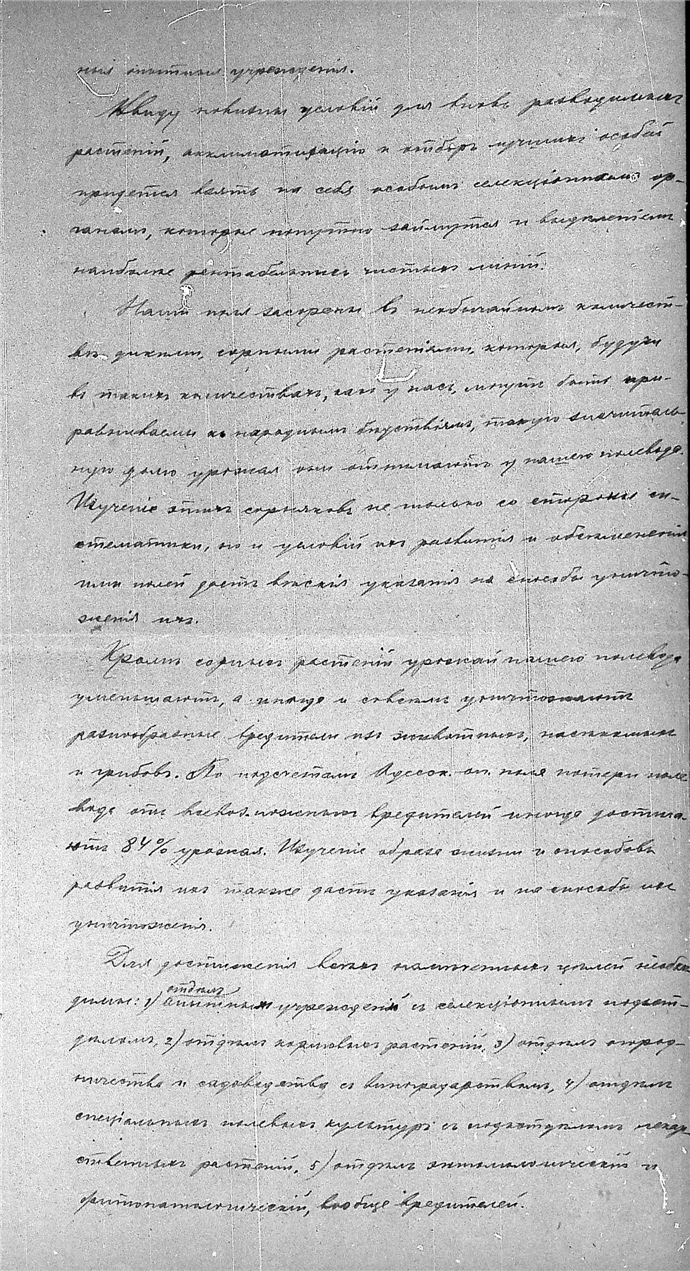 ныя опытныя учрежденія.
Ввиду новизны условій для вновь разводимыхъ
растеній, акклиматизацію и отборъ лучшихъ особей
придется взять на себя особымъ селекціоннымъ ор-
ганамъ, которые попутно займутся и выдѣленіемъ
наиболѣе рентабельныхъ чистыхъ линій.
Наши поля засорены въ необычайномъ количест-
вѣ дикими, сорными растеніями, которыя, будучи
въ такихъ количествахъ, какъ у насъ, могутъ быть при-
равниваемы къ народнымъ бѣдствіямъ, такую значитель-
ную долю урожая они отнимаютъ у нашего полевода.
Изученіе этихъ сорняковъ не только со стороны си-
стематики, но и условій ихъ развитія и обсемененія
ими полей дастъ вѣскія указанія на способы уничто-
женія ихъ.
Кромѣ сорныхъ растеній урожай нашего полевода
уменьшаютъ, а иногда и совсѣмъ уничтожаютъ
разнообразные вредители изъ животныхъ, насѣкомыхъ
и грибовъ. По подсчетамъ Одесск. оп. поля потери поле-
вода отъ всевозможныхъ вредителей иногда достига-
ютъ 84% урожая. Изученіе образа жизни и способовъ
развитія ихъ также дастъ указанія и на способы ихъ
уничтоженія.
Для достиженія всѣхъ намѣченныхъ цѣлей необхо-
димы: 1) отдѣлъ опытныхъ учрежденій съ селекціоннымъ подот-
дѣломъ, 2) отдѣлъ кормовыхъ растеній, 3) отдѣлъ огород-
ничества и садоводства съ виноградарствомъ, 4) отдѣлъ
спеціальныхъ полевыхъ культуръ съ подотдѣломъ лекар-
ственныхъ растеній, 5) отдѣлъ энтомологическій и
фитопатологическій, вообще вредителей.